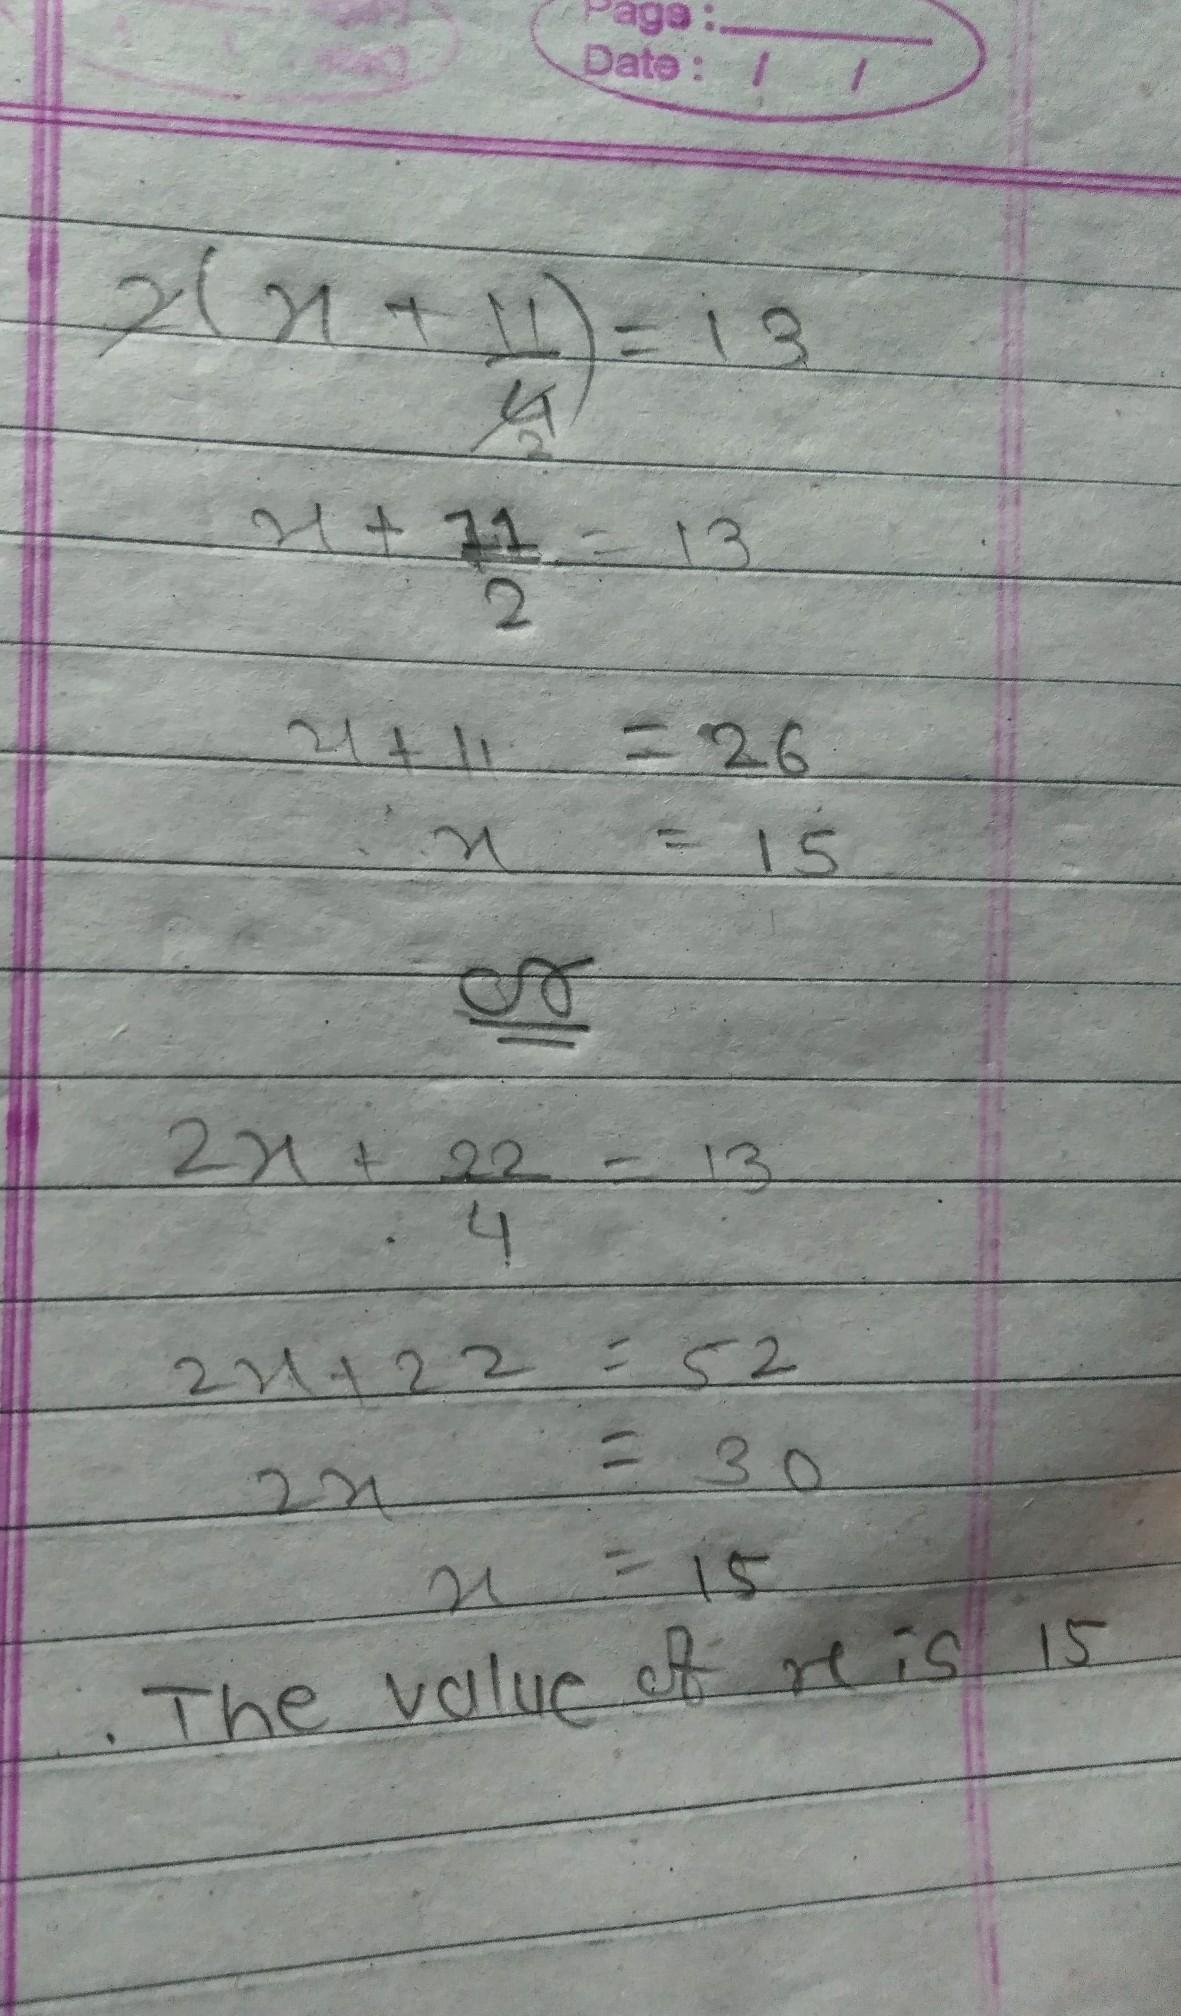 Page :
Date : / /
2(x + 11/4) = 13
2
x + 11/2 = 13
x + 11 = 26
x = 15
or
2x + 22/4 = 13
2x + 22 = 52
2x = 30
x = 15
. The value of x is 15